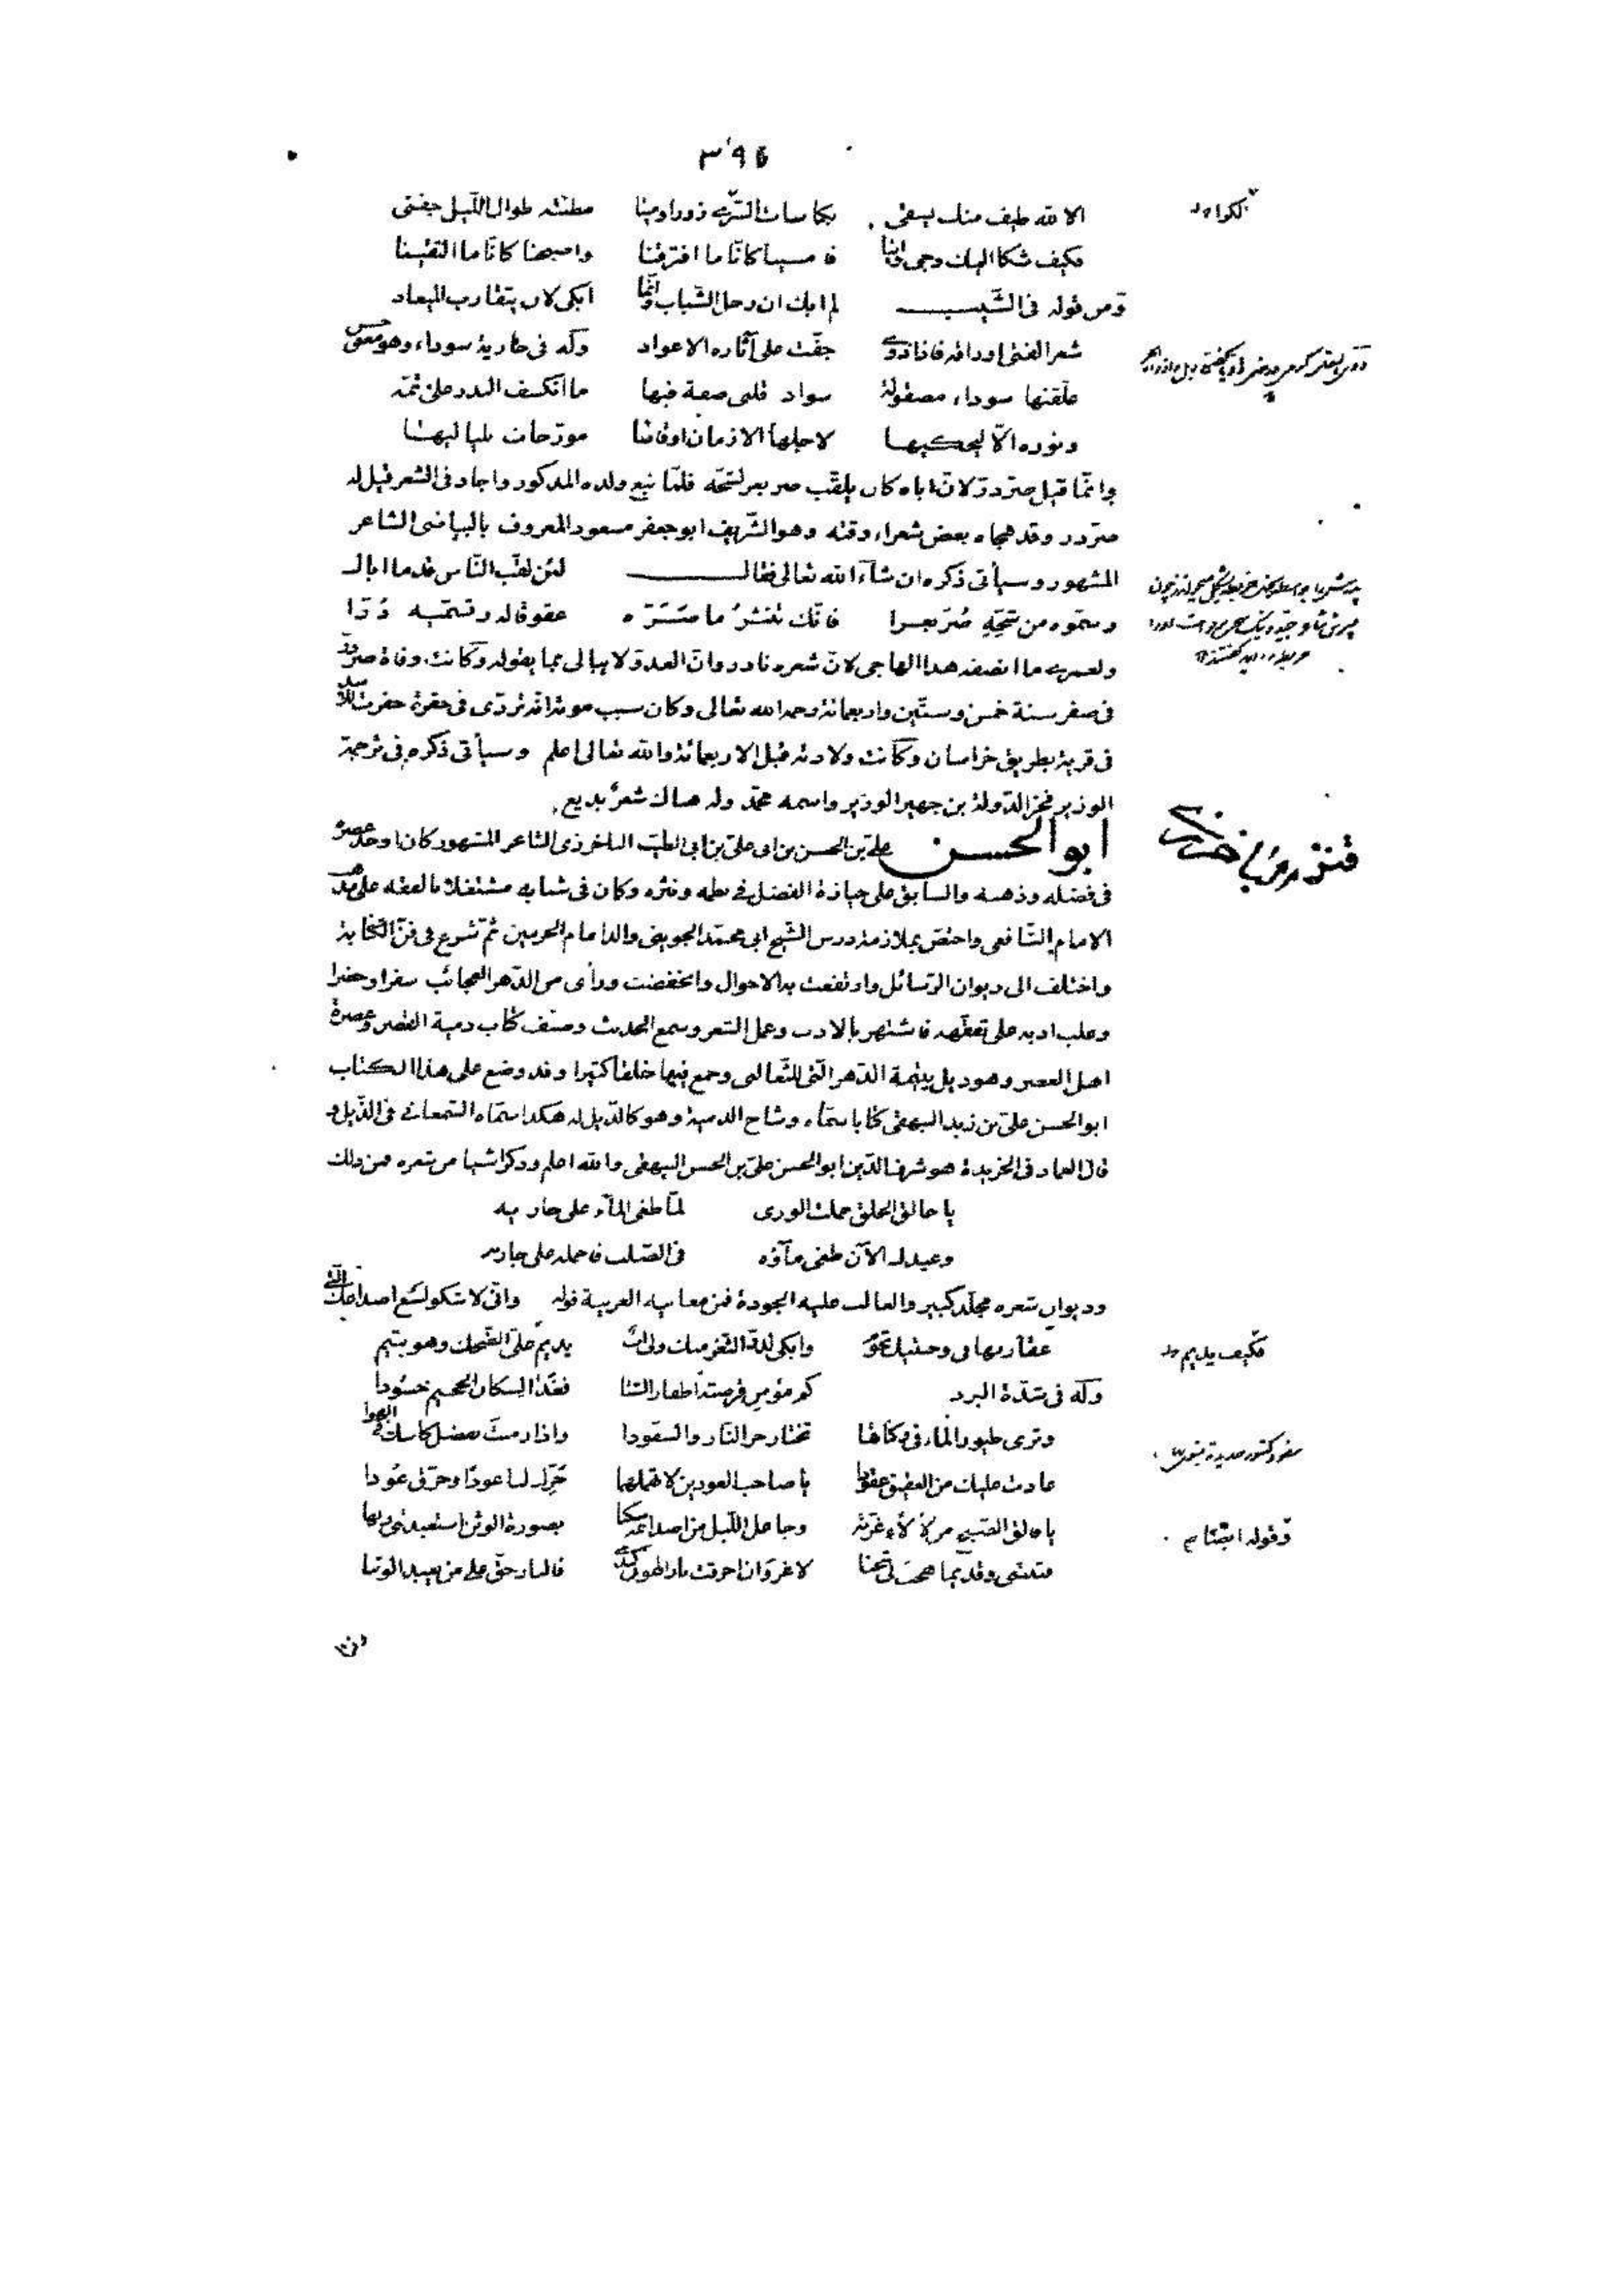 ٣٩٤
الا لله طيف منك يسقى بكاسات السرى زورا ومينا مطيته طوال الليل جفنى
فكيف شكا اليك وجى واينا فامسينا كانا ما افترقنا واصبحنا كانا ما التقينا
ومن قوله فى الشيب لم ابك ان رحل الشباب وانما ابكى لان يتقارب الميعاد
شعر الفتى اوراقه فاذا ذوى جفت على آثاره الاعواد وله فى جارية سوداء وهو معنى حسن
علقتها سوداء مصقولة سواد قلبى صفة فيها ما انكسف البدر على تمه
ونوره الا ليحكيها لاجلها الازمان اوقاتها مورخات بلياليها
وانما قيل صردر لان اباه كان يلقب صر بعر لشحه فلما نبع ولده المذكور واجاد فى الشعر قيل له
صردر وقد هجاه بعض شعراء وقته وهو الشريف ابو جعفر مسعود المعروف بالبياضى الشاعر
المشهور وسيأتى ذكره ان شآء الله تعالى فقال لئن لقب الناس قدما اباك
وسموه من شحه صر بعرا فانك تنثر ما صره عقوقا له وتسميه درا
ولعمرى ما انصفه هذا الهاجى لان شعره نادر وان العدو لا يبالى بما يقوله وكانت وفاة صردر
فى صفر سنة خمس وستين واربعمائة رحمه الله تعالى وكان سبب موته انه تردى فى حفرة حفرت للاسد
فى قرية بطريق خراسان وكانت ولادته قبل الاربعمائة والله تعالى اعلم وسيأتى ذكره فى ترجمة
الوزير فخر الدولة بن جهير الوزير واسمه محمد وله هناك شعر بديع
ابو الحسن على بن الحسن بن ابى على بن ابى الطيب الباخرذى الشاعر المشهور كان اوحد عصره
فى فضله وذهنه والسابق على حيازة الفضل فى نظمه ونثره وكان فى شبابه مشتغلا بالفقه على مذهب
الامام الشافعى واختص بملازمة درس الشيخ ابى محمد الجوينى والد امام الحرمين ثم شرع فى فن الكتابة
واختلف الى ديوان الرسائل وارتفعت به الاحوال وانخفضت ورأى من الدهر العجائب سفرا وحضرا
وغلب ادبه على تفقهه فاشتهر بالادب وعمل الشعر وسمع الحديث وصنف كتاب دمية القصر وعصرة
اهل العصر وهو ذيل يتيمة الدهر التى للثعالبى وجمع فيها خلقا كثيرا وقد وضع على هذا الكتاب
ابو الحسن على بن زيد البيهقى كتابا سماه وشاح الدمية وهو كالذيل له هكذا سماه السمعانى فى الذيل و
قال العماد فى الخريدة هو شرف الدين ابو الحسن على بن الحسن البيهقى والله اعلم وذكر اشيا من شعره فمن ذلك
يا خالق الخلق حملت الورى لما طغى المآء على جاريه
وعبدك الآن طغى مآؤه فى الصلب فاحمله على جاريه
وديوان شعره مجلد كبير والغالب عليه الجودة فمن معانيه الغريبة قوله وانى لاشكو لسع اصداغك التى
عقاربها فى وجنتيك تحوم وابكى لدر الثغر منك ولى اب يديم على الضحك وهو يتيم
وله فى شدة البرد كم مؤمن قرصته اظفار الشتا فغدا لسكان الجحيم حسودا
وترى طيور المآء فى وكناتها تختار حر النار والسفودا واذا رميت بفضل كاسك فى الهوا
عادت عليك من العقيق عقودا يا صاحب العودين لا تهملهما حرك لنا عودا وحرق عودا
يا فالق الصبح من لألآء غرته وجاعل الليل من اصداغه سكنا بصورة الوثن استعبدتنى وبها
فتنتنى وقديما هجت لى شجنا لا غرو ان احرقت نار الهوى كبدى فالنار حق على من يعبد الوثنا
فكيف يديم
وقوله ايضا